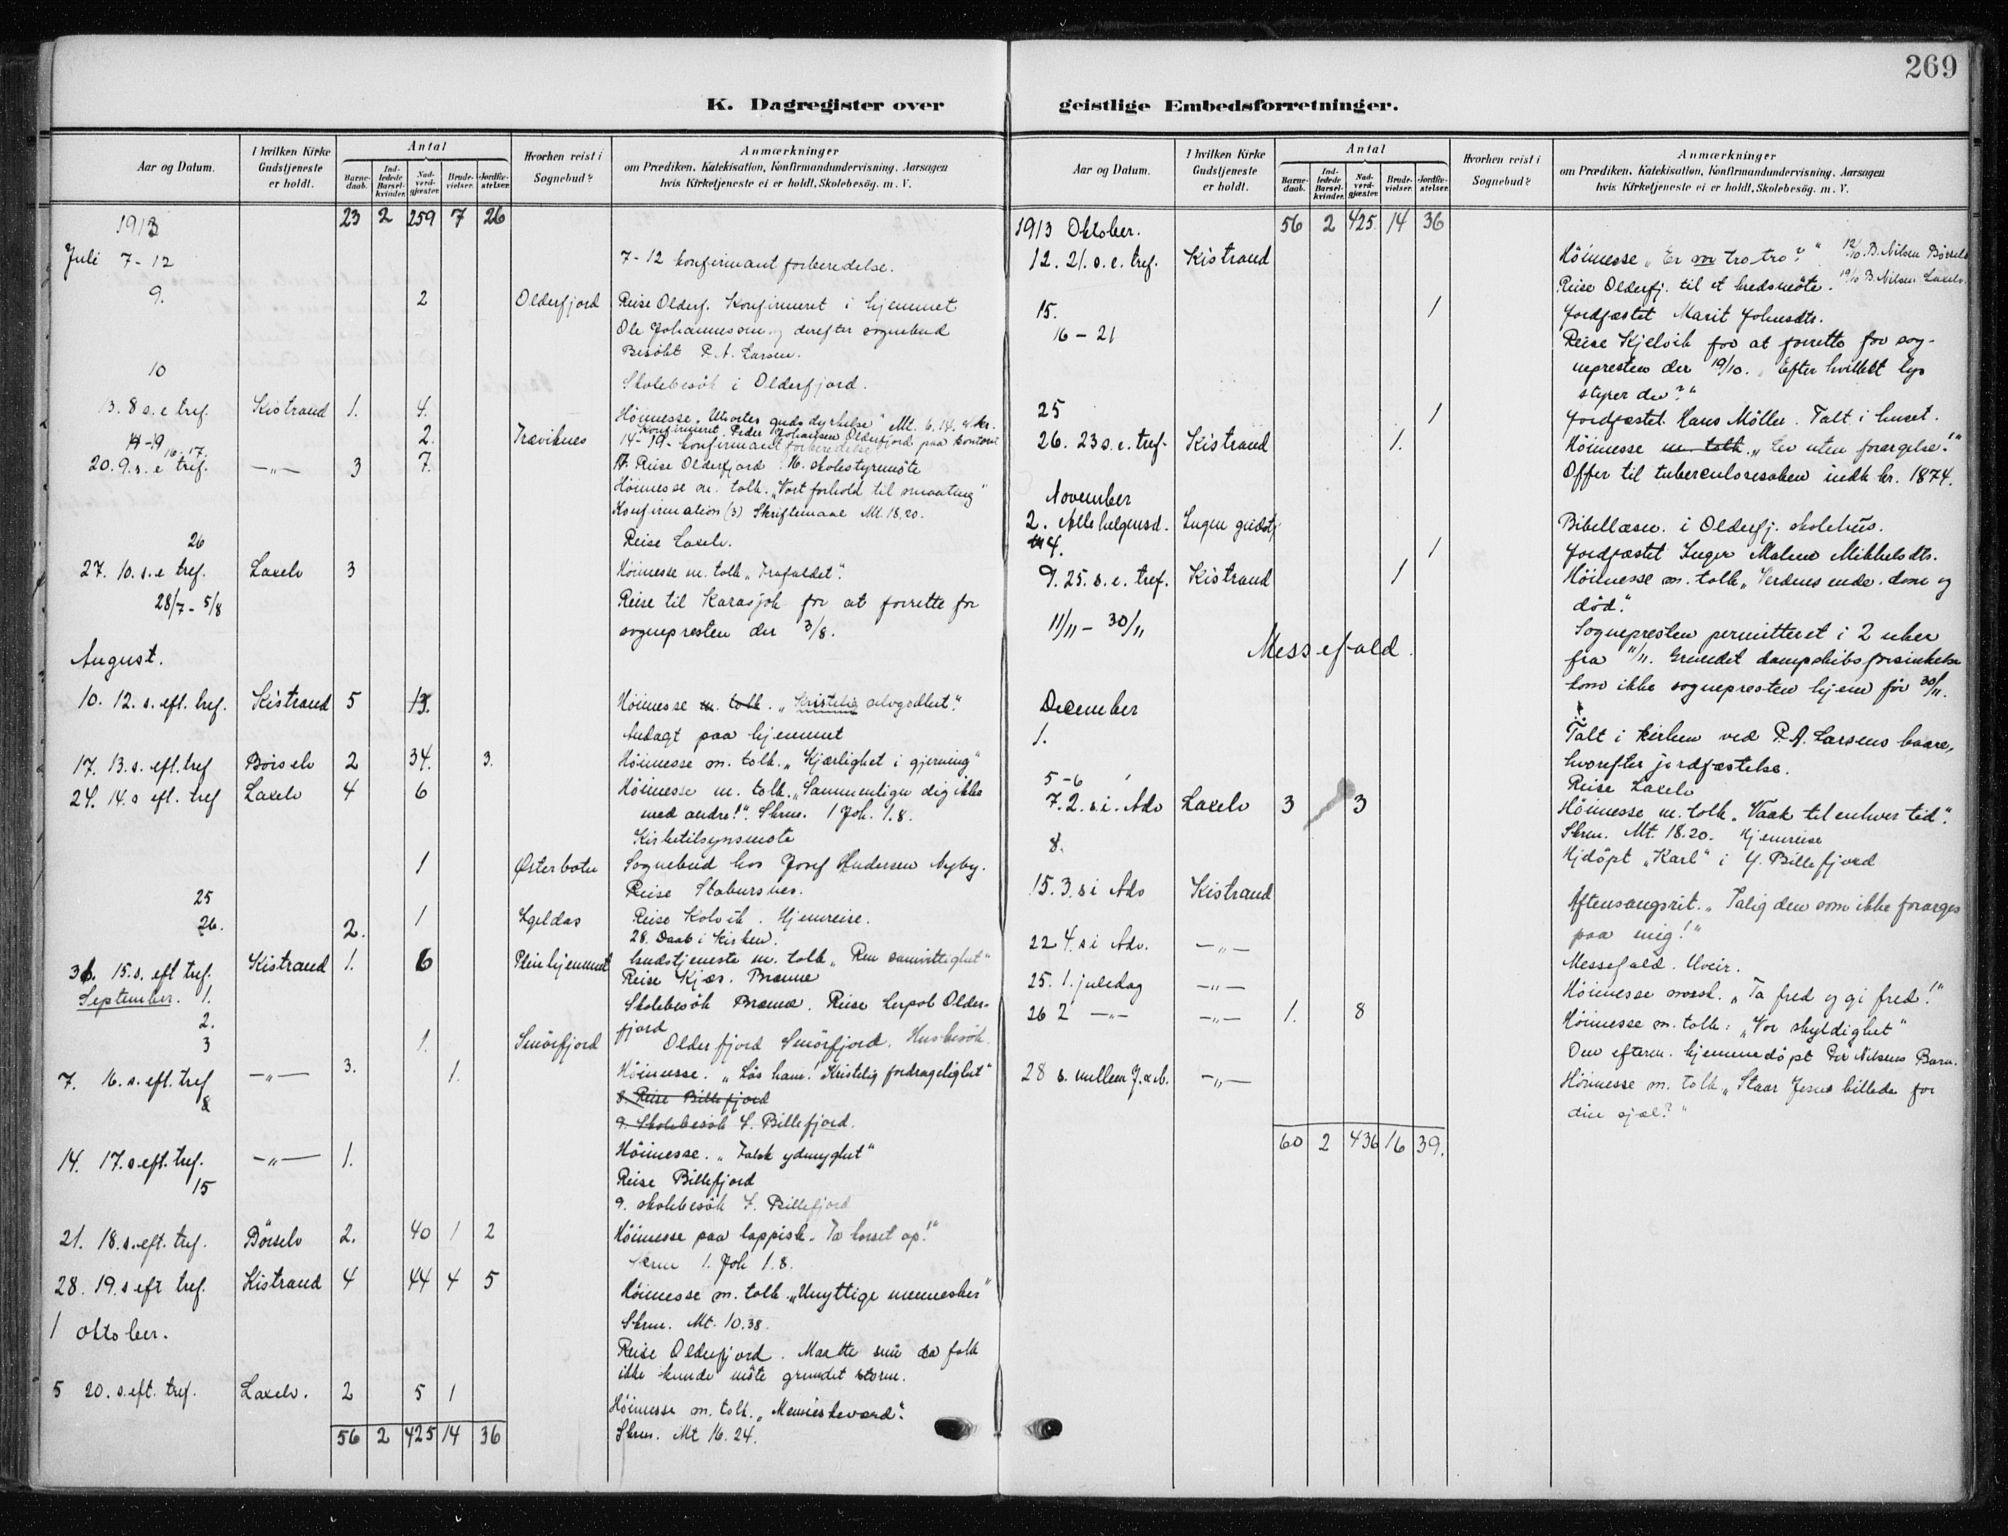 269
K. Dagregister over geistlige Embedsforretninger.
Aar og Datum. I hvilken Kirke Gudstjeneste er holdt. Antal Barnedaab. Indledede Barselkvinder. Nadverdgjæster. Brudevielser. Jordfæstelser. Hvorhen reist i Sognebud? Anmærkninger om Prædiken, Katekisation, Konfirmandundervisning, Aarsagen hvis Kirketjeneste ei er holdt, Skolebesøg. m. V.
1913 23 2 259 7 26
Juli 7-12 7-12 konfirmant forberedelse.
9. 2 Olderfjord Reise Olderf. Konfirmeret i hjemmet
Ole Johannessen og derefter sognebud
Besökt P. A. Larsen.
10 Skolebesök i Olderfjord.
13. 8 s. e tref. Kistrand 1. 4. Höimesse. Utvortes gudsdyrkelse" Mt. 6.14.
Konfirmeret Peder Johansen Olderfjord paa kontoret
14-19 2. Træviknes 14-19 - konfirmant forberedelse
16. 17.
20. 9. s. e tref. —„— 3 7. 17. Reise Olderfjord 16. skolestyremöte
Höimesse m. tolk. „Vort forhold til smaating"
Konfirmation (3) Skriftemaal Mt. 18.20.
26 Reise Laxelv.
27. 10. s. e tref. Laxelv 3 Höimesse m. tolk „Frafaldet".
28/7 - 5/8 Reise til Karasjok for at forrette for
sognepresten der 3/8.
August.
10. 12. s. eft. tref. Kistrand 5 13. Höimesse m. tolk. „Kristelig avgudleri".
Andagt paa hjemmet
17. 13. s. eft. tref Börselv 2 34. 3. Höimesse m. tolk. „Kjærlighet i gjerning"
24. 14. s eft. tref Laxelv 4 6 Höimesse m. tolk. „Sammenlign dig ikke
med andre!". Skrm. 1 Joh. 1.8.
Kirketilsynsmöte
1 Østerbotn Sognebud hos Josef Andersen Nyby.
25 Reise Stabursnes.
26. 2. 1 Igeldas Reise Kolvik. Hjemreise.
28. Daab i Kirken.
31. 15. s. eft tref. Kistrand 1. 6 Pleiehjemmet Gudstjeneste m. tolk „Ren samvittighet"
September. 1. Reise Kjæs. Brænna
2. Skolebesök Brænna. Reise Lerpol Older-
fjord
3 1. Smörfjord Olderfjord Smörfjord. Husbesök.
7. 16. s. eft. tref —„— 3. 1. Höimesse. „Lös ham! Kristelig fordragelighet"
8 8. Reise Billefjord
9. Skolebesök Y. Billefjord.
14. 17. s. eft. tref. —„— 1. Höimesse. „Falsk ydmyghet"
15 Reise Billefjord
9. skolebesök Y. Billefjord
21. 18. s. eft. tref. Börselv 2. 40 1 2 Höimesse paa lappisk. „Ta korset op!"
Skrm 1. Joh 1.8.
28. 19. s eft tref. Kistrand 4 44 4 5 Höimesse m. tolk. „Unyttige mennesker"
Skrm. Mt. 10.38.
1 Oktober. Reise Olderfjord. Maatte snu da folk
ikke kunde möte grundet storm.
5 20. s. eft. tref. Laxelv. 2 5 1 Höimesse m. tolk. „Menneskeværd".
56 2 425 14 36 Skrm. Mt 16.24.
Aar og Datum. I hvilken Kirke Gudstjeneste er holdt. Antal Barnedaab. Indledede Barselkvinder. Nadverdgjæster. Brudevielser. Jordfæstelser. Hvorhen reist i Sognebud? Anmærkninger om Prædiken, Katekisation, Konfirmandundervisning, Aarsagen hvis Kirketjeneste ei er holdt, Skolebesög. m. V.
1913 Oktober. 56 2 425. 14 36
12. 21. s. e. tref. Kistrand Höimesse „Er vor tro tro?" 12/10 B. Nilsen Börselv
Reise Olderfj. til et kredsmöte. 19/10 B. Nilsen Laxelv.
15. 1 Jordfæstet Marit Johnsdtr.
16 - 21 Reise Kjelvik for at forrette for sog-
nepresten der 19/10. „Efter hvilket lys
styrer du?"
25 1 Jordfæstet Hans Möller. Talt i huset.
26. 23 s. e. tref. Kistrand 1. Höimesse m. tolk. „Lev uten forargelse!"
Offer til tuberculosesaken indk kr. 1874.
November
2. Allehelgensd. Ingen gudstj Bibellæsn. i Olderfj. skolehus.
4. 1 Jordfæstet Inger Malene Mikkelsdtr.
9. 25. s. e. tref. Kistrand 1 Höimesse m. tolk „Verdens ende. dom og
död".
11/11 - 30/11 Messefald. Sognepresten permitteret i 2 uker
fra 11/11. Grundet dampskibsforsinkelse
kom ikke sognepresten hjem för 30/11.
December
1. Talt i kirken ved P. A. Larsens baare,
hvorefter jordfæstelse.
5-6 Reise Laxelv
7. 2. s. i. Adv Laxelv 3 3 Höimesse m. tolk „Vaak til enhver tid".
Skrm. Mt. 18.20. Hjemreise
8. Hjdöpt „Karl" i Y. Billefjord
15. 3. s i Adv Kistrand Aftensangsrit. „Salig den som ikke forarges
paa mig!"
22 4. s i Adv. —„— Messefald. Uveir.
25. 1. juledag —„— Höimesse norsk. „Ta fred og gi fred!"
26 2 —„— —„— 1. 8 Höimesse m. tolk: „Vor skyldighet"
Den efterm. hjemmedöpt Per Nilsens Barn.
28 s. mellem J. o. —„— Höimesse m. tolk „Staar Jesus billede for
din sjæl?"
60 2 436 16 39.